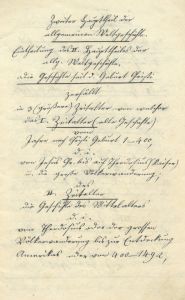 Zweiter Haupttheil der
allgemeinen Weltgeschichte.
Eintheilung des II. Haupttheiles der
allg. Weltgeschichte.
die Geschichte seit d. Geburt Christi
zerfällt
in 3 (größere) Zeitalter, von welcher
das I. Zeitalter (alte Geschichte)
vom
Jahre nach Christi Geburt 1–400,
d. i.
von Jesus bis auf Theodosius (Kaiser)
u. die große Völkerwanderung;
das
II. Zeitalter
die Geschichte des Mittelalters
d. i.
von Theodosius oder der großen
Völkerwanderung bis zur Entdeckung
Amerikas oder von 400–1492,